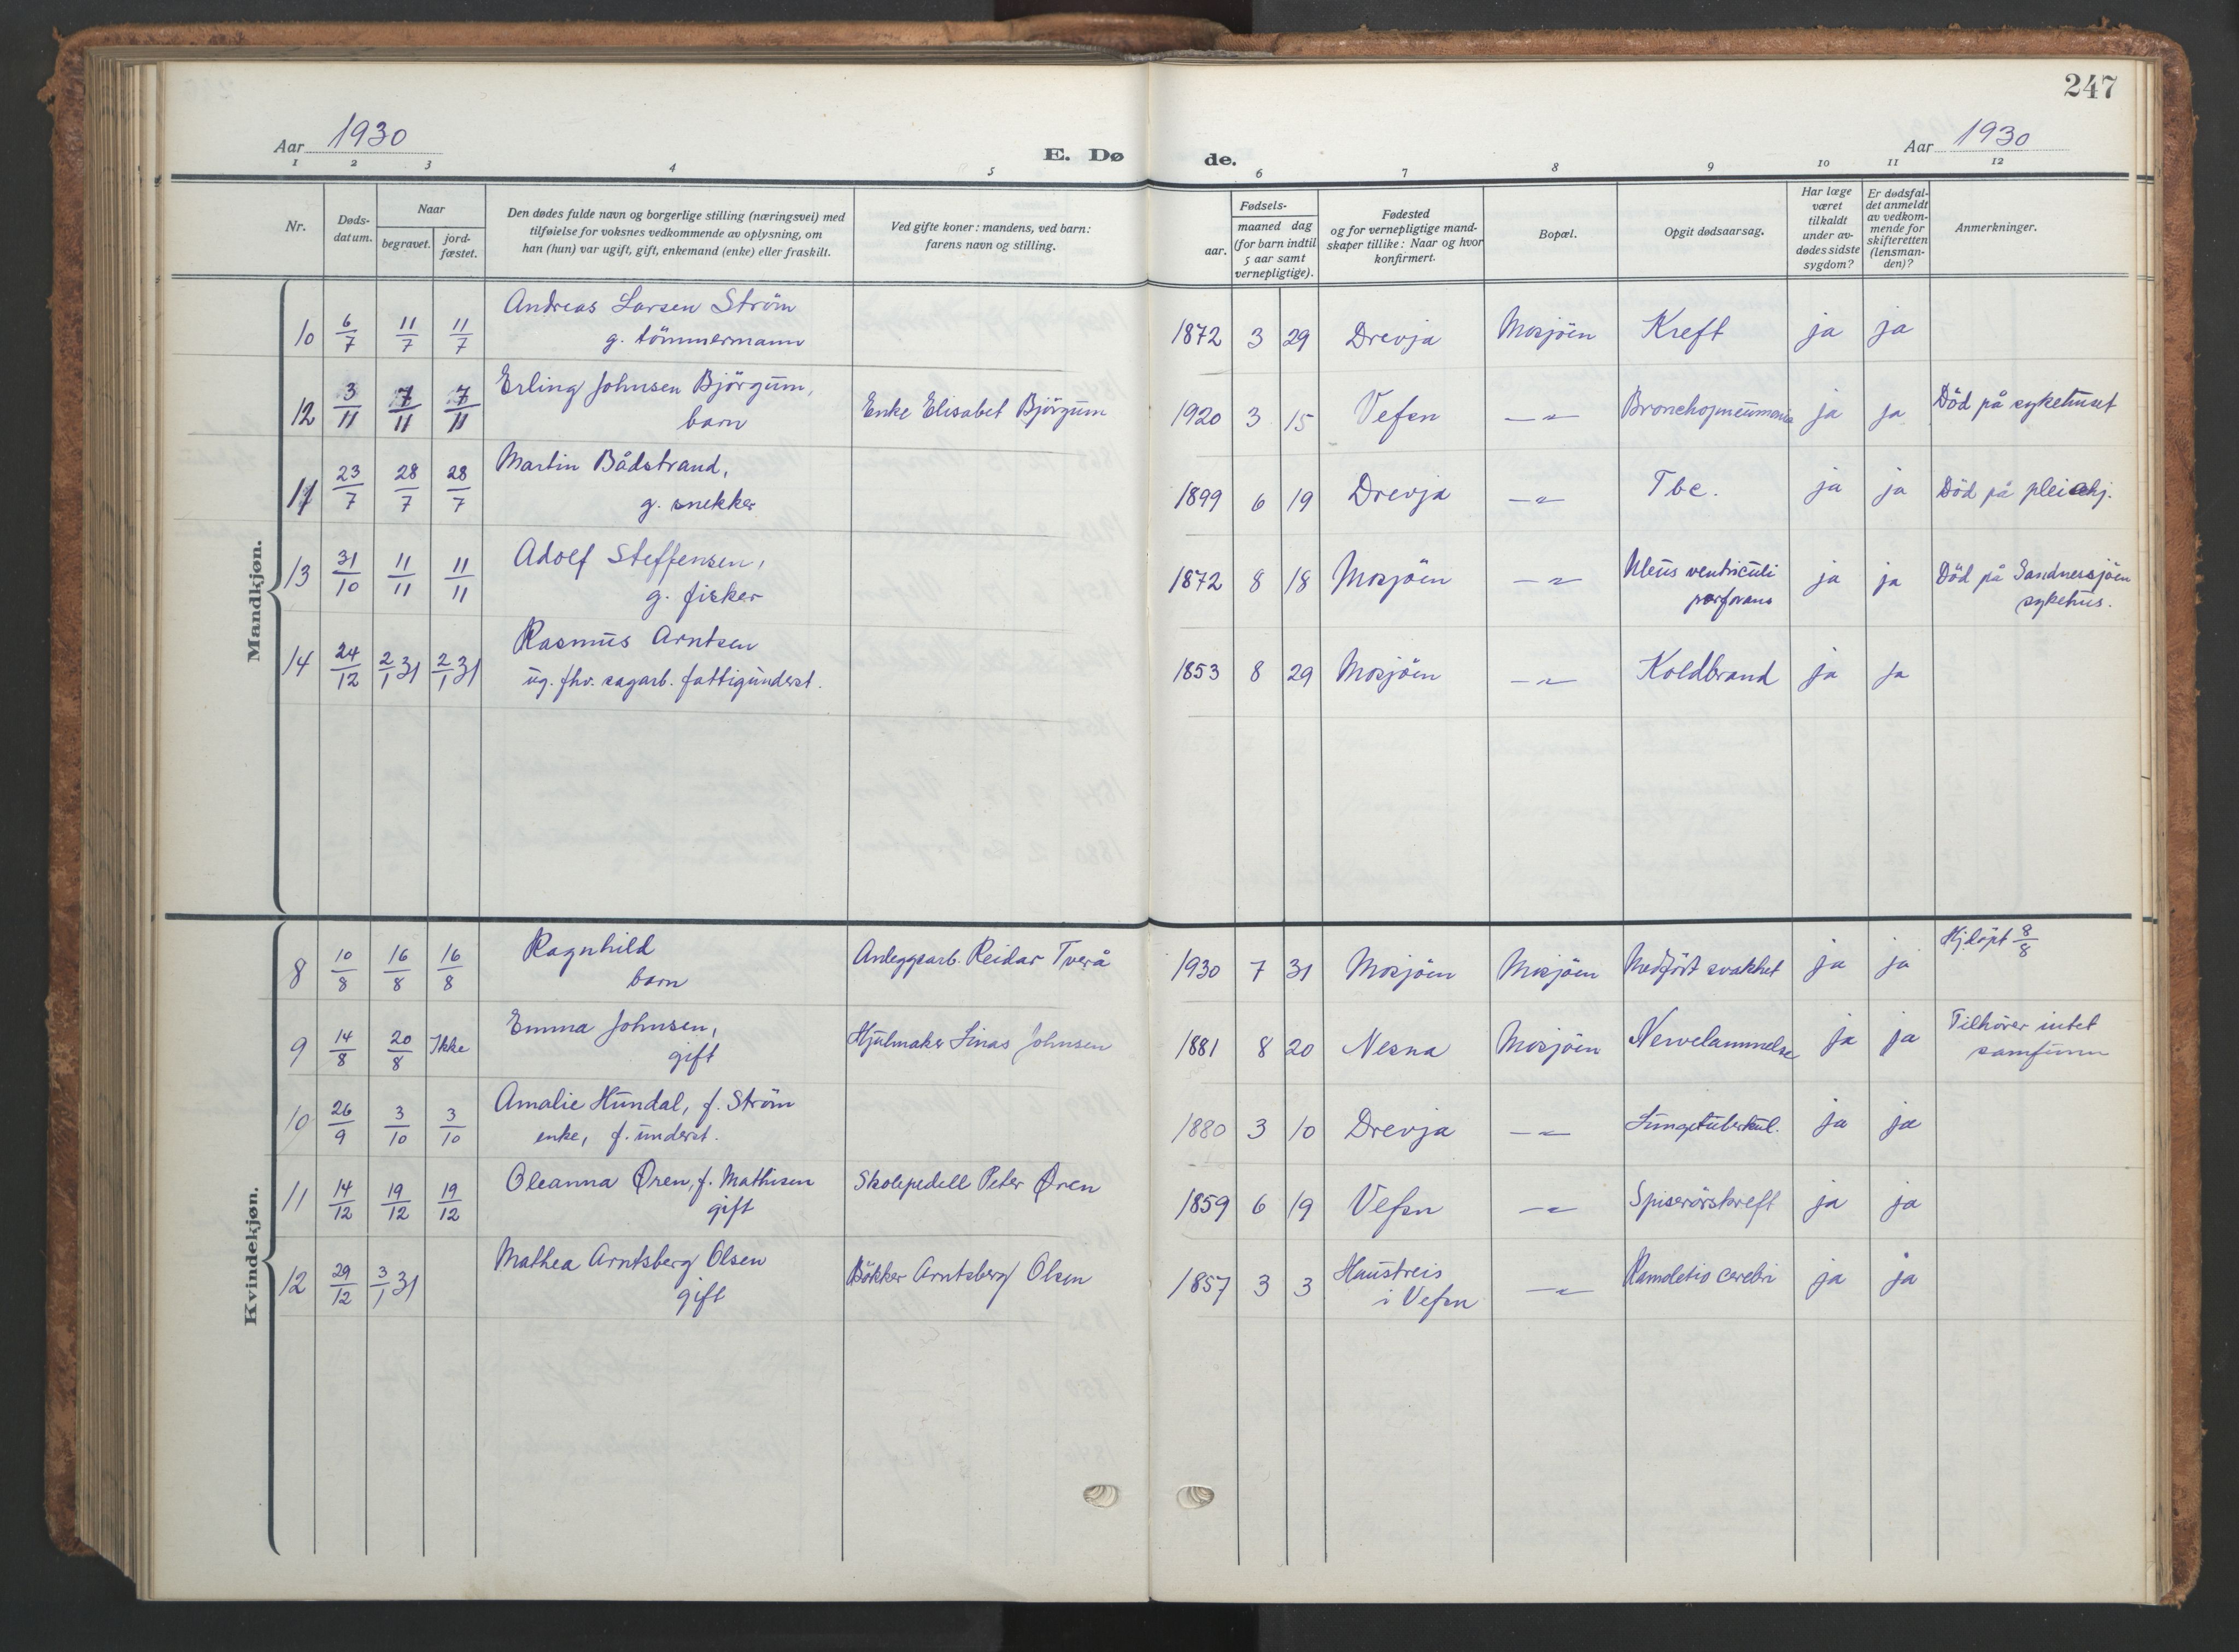 247
Aar 1930
E. Dø
de.
Aar 1930
1 2 3 4 5 6 7 8 9 10 11 12
Nr.
Døds-
datum.
Naar
begravet.
jord-
fæstet.
Den dødes fulde navn og borgerlige stilling (næringsvei) med
tilføielse for voksnes vedkommende av oplysning, om
han (hun) var ugift, gift, enkemand (enke) eller fraskilt.
Ved gifte koner: mandens, ved barn:
farens navn og stilling.
Fødsels-
aar.
maaned dag
(for barn indtil
5 aar samt
vernepligtige).
Fødested
og for vernepligtige mand-
skaper tillike: Naar og hvor
konfirmert.
Bopæl.
Opgit dødsaarsag.
Har læge
været
tilkaldt
under av-
dødes sidste
sygdom?
Er dødsfal-
det anmeldt
av vedkom-
mende for
skifteretten
(lensman-
den)?
Anmerkninger.
Mandkjøn.
10 6/7 11/7 11/7 Andreas Larsen Ström
g. tömmermann
1872 3 29 Drevja Mosjöen Kreft ja ja
12 3/11 7/11 7/11 Erling Johnsen Björgum,
barn
Enke Elisabet Björgum 1920 3 15 Vefsn —"— Bronchopneumonia ja ja Död på sykehuset
11 23/7 28/7 28/7 Martin Bådstrand,
g. snekker
1899 6 19 Drevja —"— Tbc. ja ja Död på pleiehj.
13 31/10 11/11 11/11 Adolf Steffensen,
g. fisker
1872 8 18 Mosjöen —"— Ulcus ventriculi
perforans
ja ja Död på Sandnessjöen
sykehus.
14 24/12 2/1 31 2/1 31 Rasmus Arntsen
ug. fhv. sagarb. fattigunderst.
1853 8 29 Mosjöen —"— Koldbrand ja ja
Kvindekjøn.
8 10/8 16/8 16/8 Ragnhild
barn
Anleggsarb. Reidar Tverå 1930 7 31 Mosjöen Mosjöen Medfört svakhet ja ja Hjdöpt 8/8
9 14/8 20/8 Ikke Emma Johnsen,
gift
Hjulmaker Linas Johnsen 1881 8 20 Nesna Mosjöen Nervelammelse ja ja Tilhörer intet
samfunn
10 26/9 3/10 3/10 Amalie Hundal, f. Ström
enke, f. underst.
1880 3 10 Drevja —"— Lungetuberkul. ja ja
11 14/12 19/12 19/12 Oleanna Øren, f. Mathisen
gift
Skolepedell Peter Øren 1859 6 19 Vefsn —"— Spiserörskreft ja ja
12 29/12 3/1 31 Mathea Arntsberg Olsen
gift
Bökker Arntsberg Olsen 1857 3 3 Haustreis
i Vefsn
—"— Ramoletio cerebri ja ja